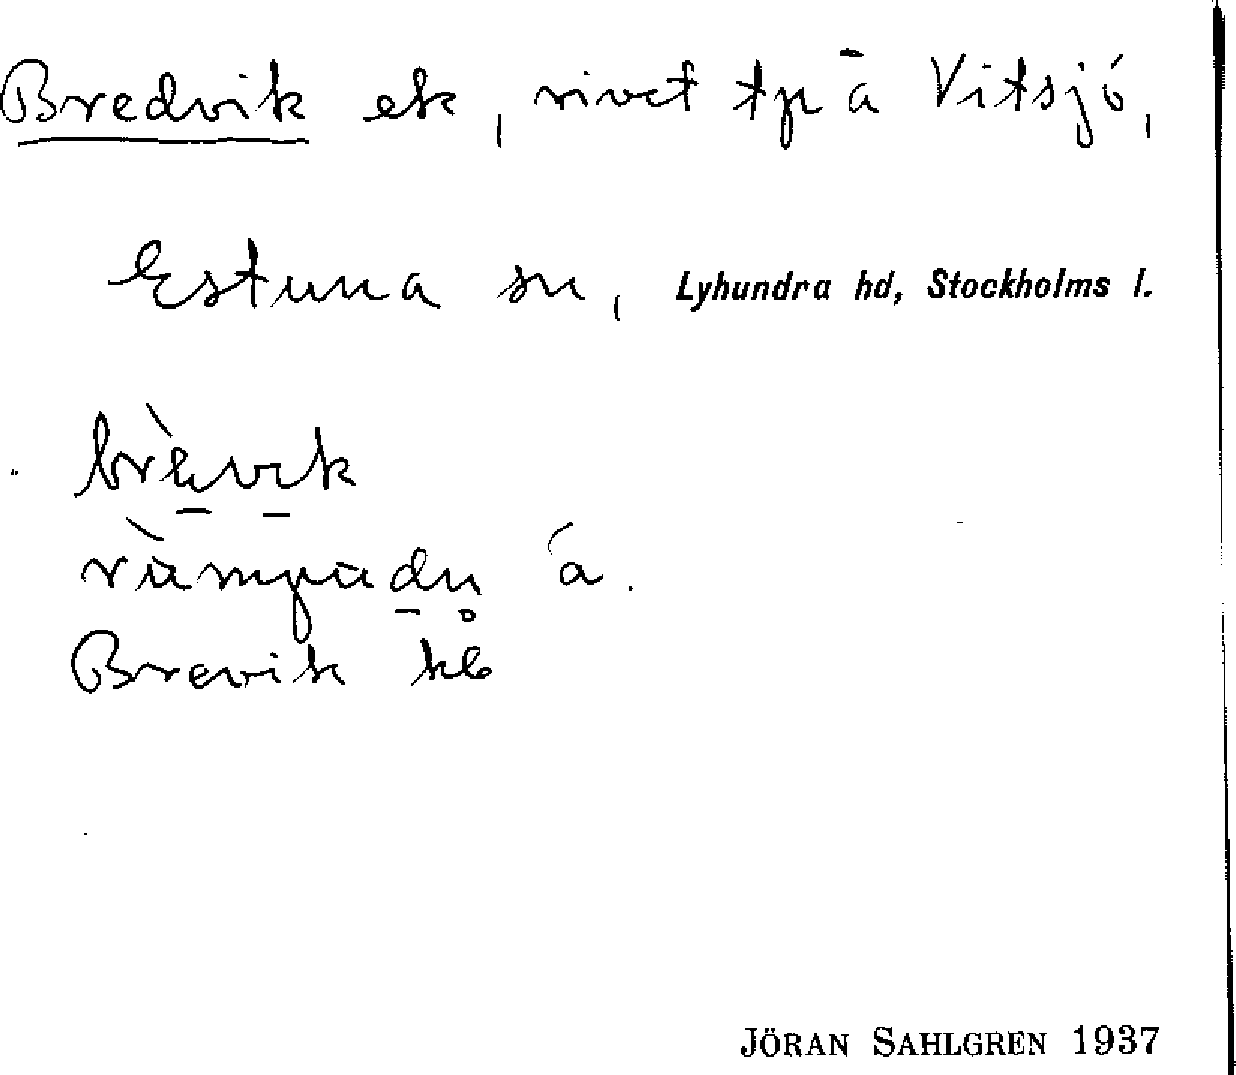 Bredvik ek, rivet tp å Vitsjö,
Estuna sn, Lyhundra hd, Stockholms l.
brèvik
Brevik kb
JÖRAN SAHLGREN 1937